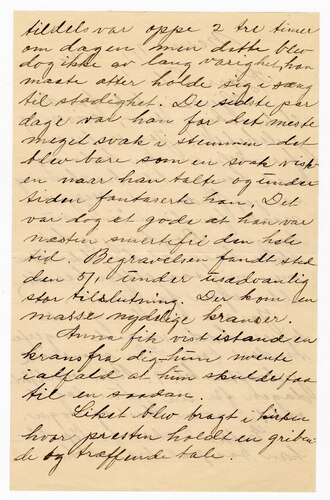 tildels var oppe 2 tre timer
om dagen men dette blev
dog ikke av lang varighet, han
maate atter holde sig i sæng
til stadighet. De sidste par
dage var han for det meste
meget svak i stemmen det
blev bare som en svak visk
en naar han talte og under
tiden fantaserte han, Det
var dog et gode at han var
næsten smertefri den hele
tid. Begravelsen fandt sted
den 5/1 under usædvanlig
stor tilslutning. Der kom en
masse nydelige kranser.
Anna fik vist istand en
krans fra dig - hun mente
ialfald at hun skulde faa
til en saadan.
Liket blev bragt i kirken
hvor presten holdt en griben
de og træffende tale.